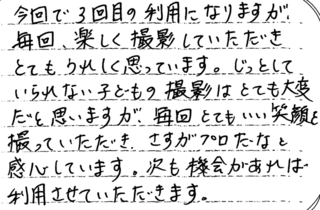 今回で3回目の利用になりますが、
毎回、楽しく撮影していただき
とてもうれしく思っています。じっとして
いられない子どもの撮影はとても大変
だと思いますが、毎回とてもいい笑顔を
撮っていただき、さすがプロだなと
感心しています。次も機会があれば
利用させていただきます。